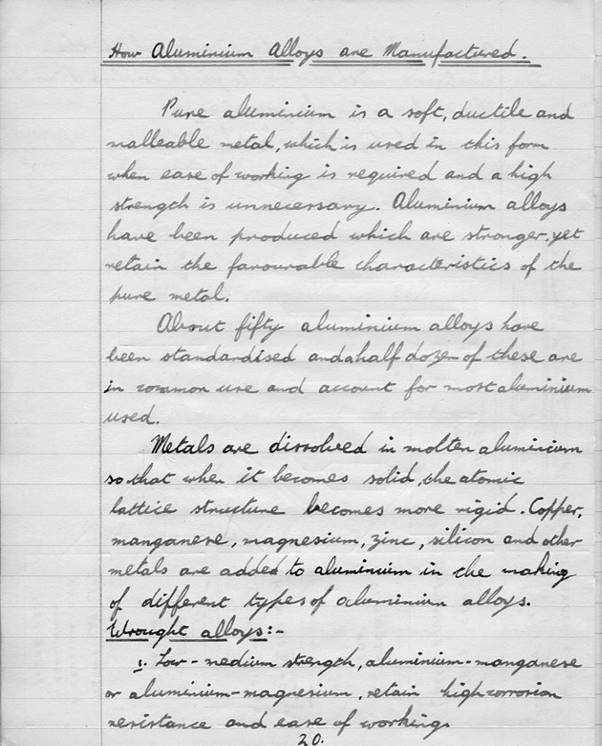 How Aluminium Alloys are Manufactured.
Pure aluminium is a soft, ductile and
malleable metal, which is used in this form
when ease of working is required and a high
strength is unnecessary. Aluminium alloys
have been produced which are stronger, yet
retain the favourable characteristics of the
pure metal.
About fifty aluminium alloys have
been standardised and a half dozen of these are
in common use and account for most aluminium
used.
Metals are dissolved in molten aluminium
so that when it becomes solid, the atomic
lattice structure becomes more rigid. Copper,
manganese, magnesium, zinc, silicon and other
metals are added to aluminium in the making
of different types of aluminium alloys.
Wrought alloys:-
1. Low-medium strength, aluminium-manganese
or aluminium-magnesium, retain high corrosion
resistance and ease of working.
20.